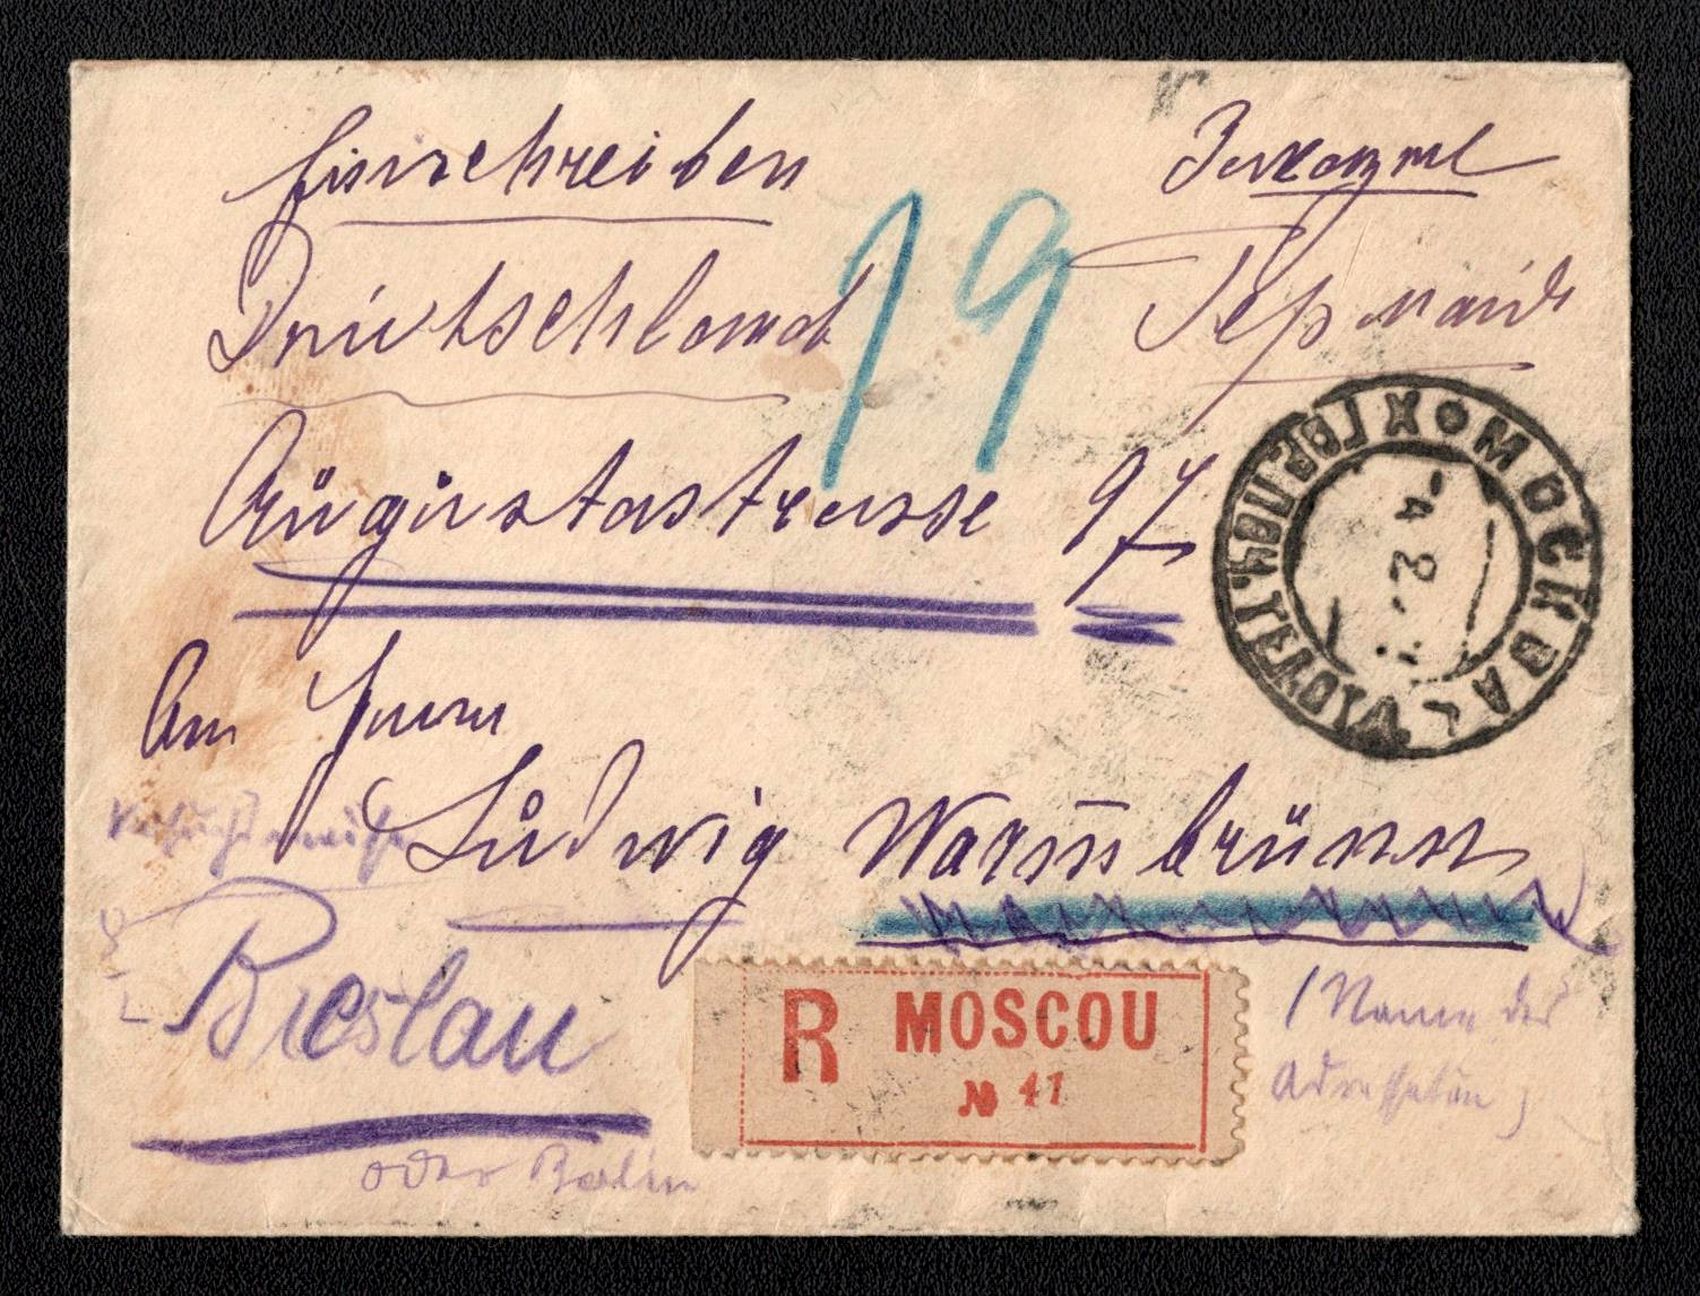 Einschreiben
Заказное
Deutschland
19
Германия
Augustastrasse 97
МОСКВА
4 2
An Herrn
Ludwig Warmbrunn
Breslau
R MOSCOU
№ 41
(Name des
Adressaten)
oder Berlin